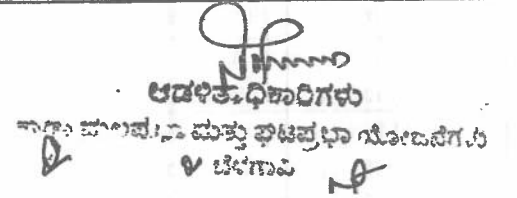 ಆಡಳಿತಾಧಿಕಾರಿಗಳು
ಮಲಪ್ರಭಾ ಮತ್ತು ಘಟಪ್ರಭಾ ಯೋಜನೆಗಳು
ಬೆಳಗಾವಿ